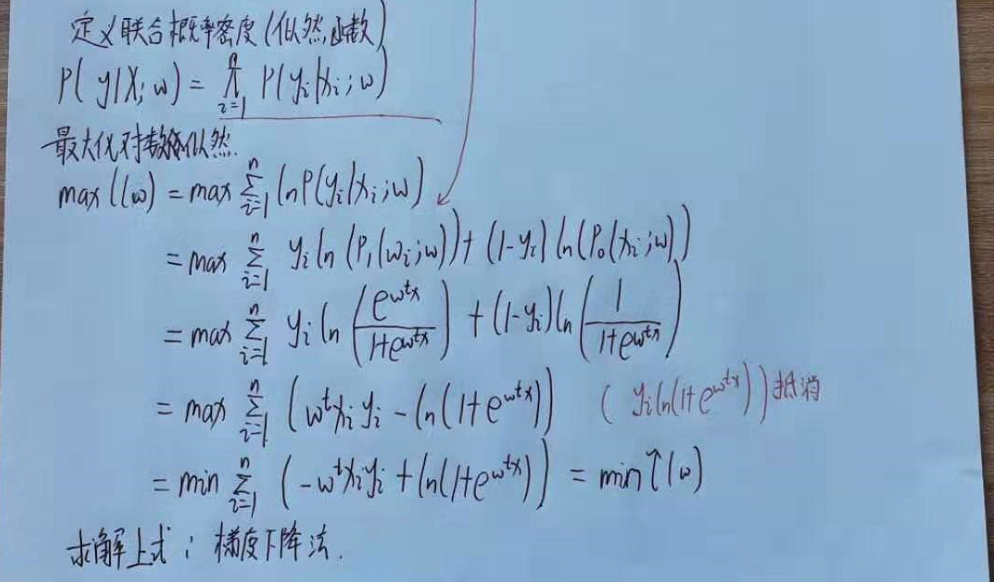 定义联合概率密度(似然函数)
P(y|X;w) = ∏_{i=1}^{n} P(y_i|x_i;w)
最大化对数似然.
max l(w) = max ∑_{i=1}^{n} ln P(y_i|x_i;w)
= max ∑_{i=1}^{n} y_i ln(P_1(w_i;w)) + (1-y_i) ln(P_0(x_i;w))
= max ∑_{i=1}^{n} y_i ln(e^{w^t x}/(1+e^{w^t x})) + (1-y_i) ln(1/(1+e^{w^t x}))
= max ∑_{i=1}^{n} (w^t x_i y_i - ln(1+e^{w^t x})) (y_i ln(1+e^{w^t x}))抵消
= min ∑_{i=1}^{n} (-w^t x_i y_i + ln(1+e^{w^t x})) = min l̂(w)
求解上式: 梯度下降法.